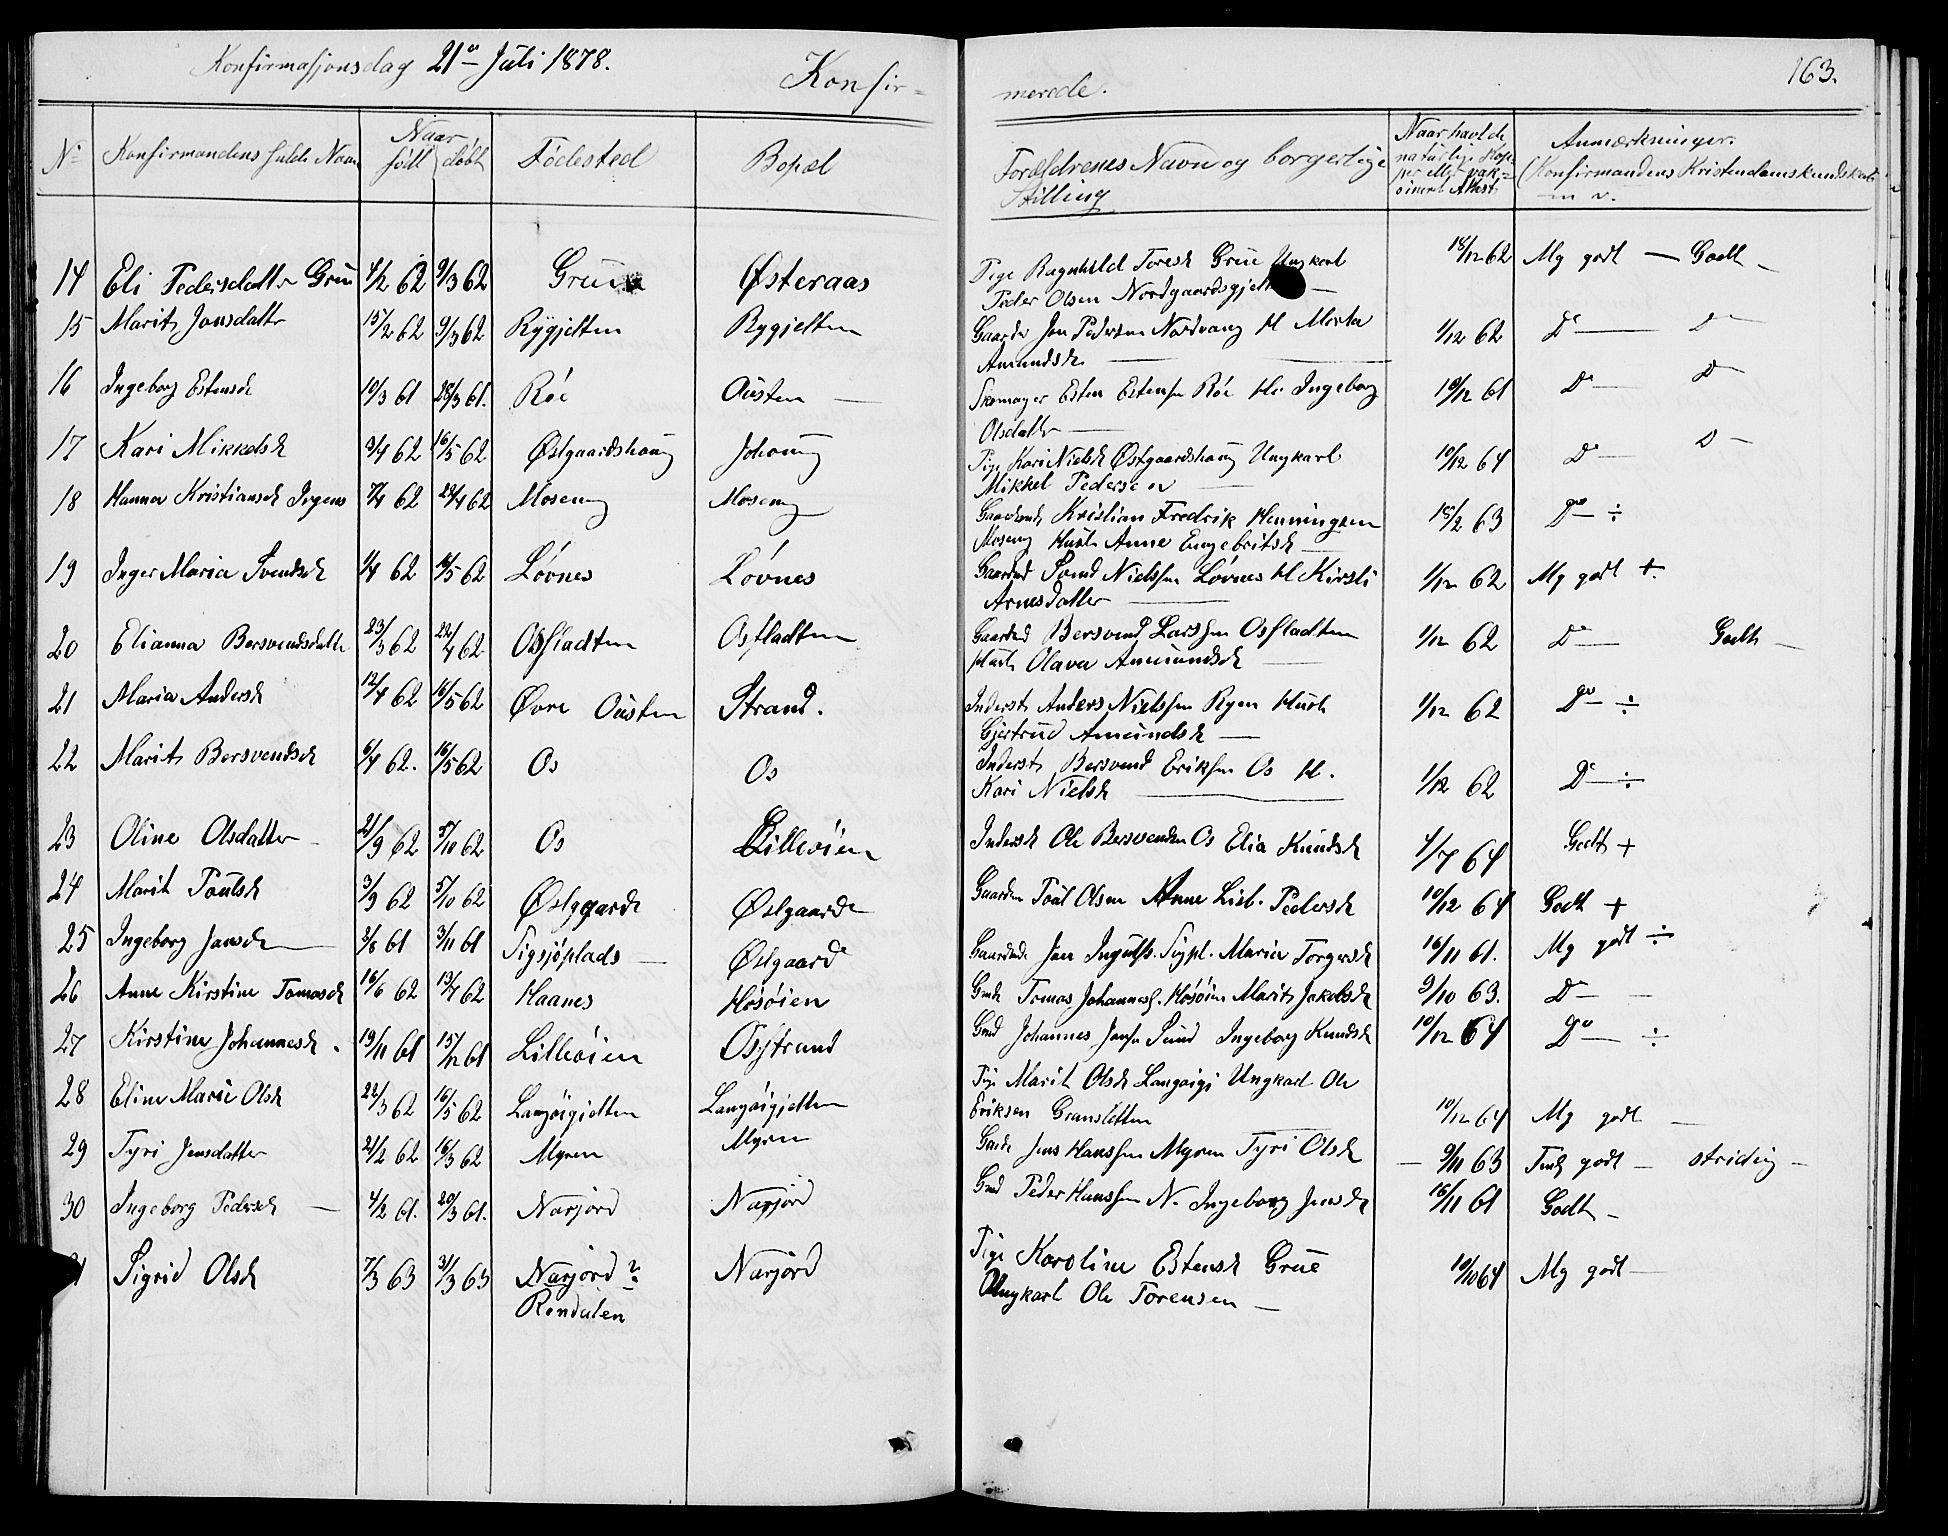 Konfirmasjonsdag 21de Juli 1878.
Konfir-
merede.
163.
No Konfirmandens fulde Navn Naar født døbt Födested Bopæl
Forældrenes Navn og borgerlige Stilling
Naar havt de naturlige Kopper eller vakcineret Attest
Anmærkninger. (Konfirmandens Kristendomskundskab m. v.
14 Eli Pedersdatter Grue 4/2 62 9/3 62 Grue Østeraas Pige Ragnhild Toresd Grue Ungkarl 18/12 62 Mg godt — Godt —
Peder Olsen Nordgaardsgjelt —
15 Marit Jonsdattr 15/2 62 9/3 62 Rygjelten Rygjelten Gaardbr Jon Pedersen Nordvang H Marta 1/12 62 Do — Do
Amundsd —
16 Ingeborg Estensd 10/3 61 28/3 61. Röe Ousten — Skomager Esten Estensen Röe H. Ingeborg 10/12 61 Do — Do
Olsdattr —
17 Kari Mikkelsd 3/4 62 16/5 62 Østgaardshaug Johaug Pige Kari Nielsd Østgaardshaug Ungkarl 10/12 64 Do — D —
Mikkel Pedersen —
18 Hanna Kristiansd Irgens 7/4 62 29/4 62 Moseng Moseng Gaardmd Kristian Fredrik Henningsen 18/2 63 Do — ÷
Moseng Hustr Anne Engebritsd —
19 Inger Maria Svendsd 1/4 62 16/5 62 Lövnes Lövnes Gaardmd Svend Nielssen Lövnes H Kirsti 1/12 62 Mg godt +
Arnesdatter —
20 Elianna Bersvendsdattr 23/3 62 22/4 62 Osfladten Osfladten Gaardmd Bersvend Larssen Osfladten 1/12 62 Do — Godt —
Hustr Olava Amundsd —
21 Maria Andersd 12/4 62 16/5 62 Øvre Ousten Strand. Inderst Anders Nielssen Ryen Hustr 1/12 62 Do — ÷
Gjertrud Amundsd —
22 Marit Bersvendsd 6/4 62. 16/5 62 Os Os Inderst Bersvend Eriksen Os H. 1/12 62 Do — ÷
Kari Nielsd —
23 Oline Olsdatter 21/9 62 5/10 62 Os Lilleöien Inderst Ole Bersvendsen Os Elia Knudsd 4/7 64 Godt +
24 Marit Poulsd 3/9 62 5/10 62 Østgaarde Østgaarde Gaardm Poul Olsen Anne Lisb. Pedersd 10/12 64 Godt +
25 Ingeborg Jonsd — 3/8 61 3/11 61 Sigsjöplads — Østgaard Gaardmd Jon Ingulfs. Sigpl. Maria Torgersd 16/11 61. Mg godt ÷
26 Anne Kirstine Tomasd 16/6 62 13/7 62 Haanes Hösöien Gmd Tomas Johanness. Hösöien Marit Jakobsd 9/10 63. Do —
27 Kirstine Johannesd. 19/11 61 15/12 61 Lilleöien Osstrand Gmd Johannes Jonsen Sund Ingeborg Knudsd 10/12 64 Do — ÷
28 Eline Marie Olsd 22/3 62 16/5 62 Langöigjelten Langöigjelten Pige Marit Olsd Langöigj Ungkarl Ole
Eriksen Gransletten 10/12 64 Mg godt —
29 Tyri Jensdatter 21/2 62 16/3 62 Myren Myren Gmd Jens Hanssen Myren Tyri Olsd — 9/11 63 Tml godt — stridig —
30 Ingeborg Pedersd — 4/2 61. 20/3 61. Narjord Narjord Gmd Peder Hanssen N. Ingeborg Jensd 16/11 61 Godt —
Sigrid Olsd 7/3 63 31/3 63 Narjord ? Narjord Pige Karoline Estensd Grue 10/10 64 Mg godt —
Rendalen Ungkarl Ole Torensen —